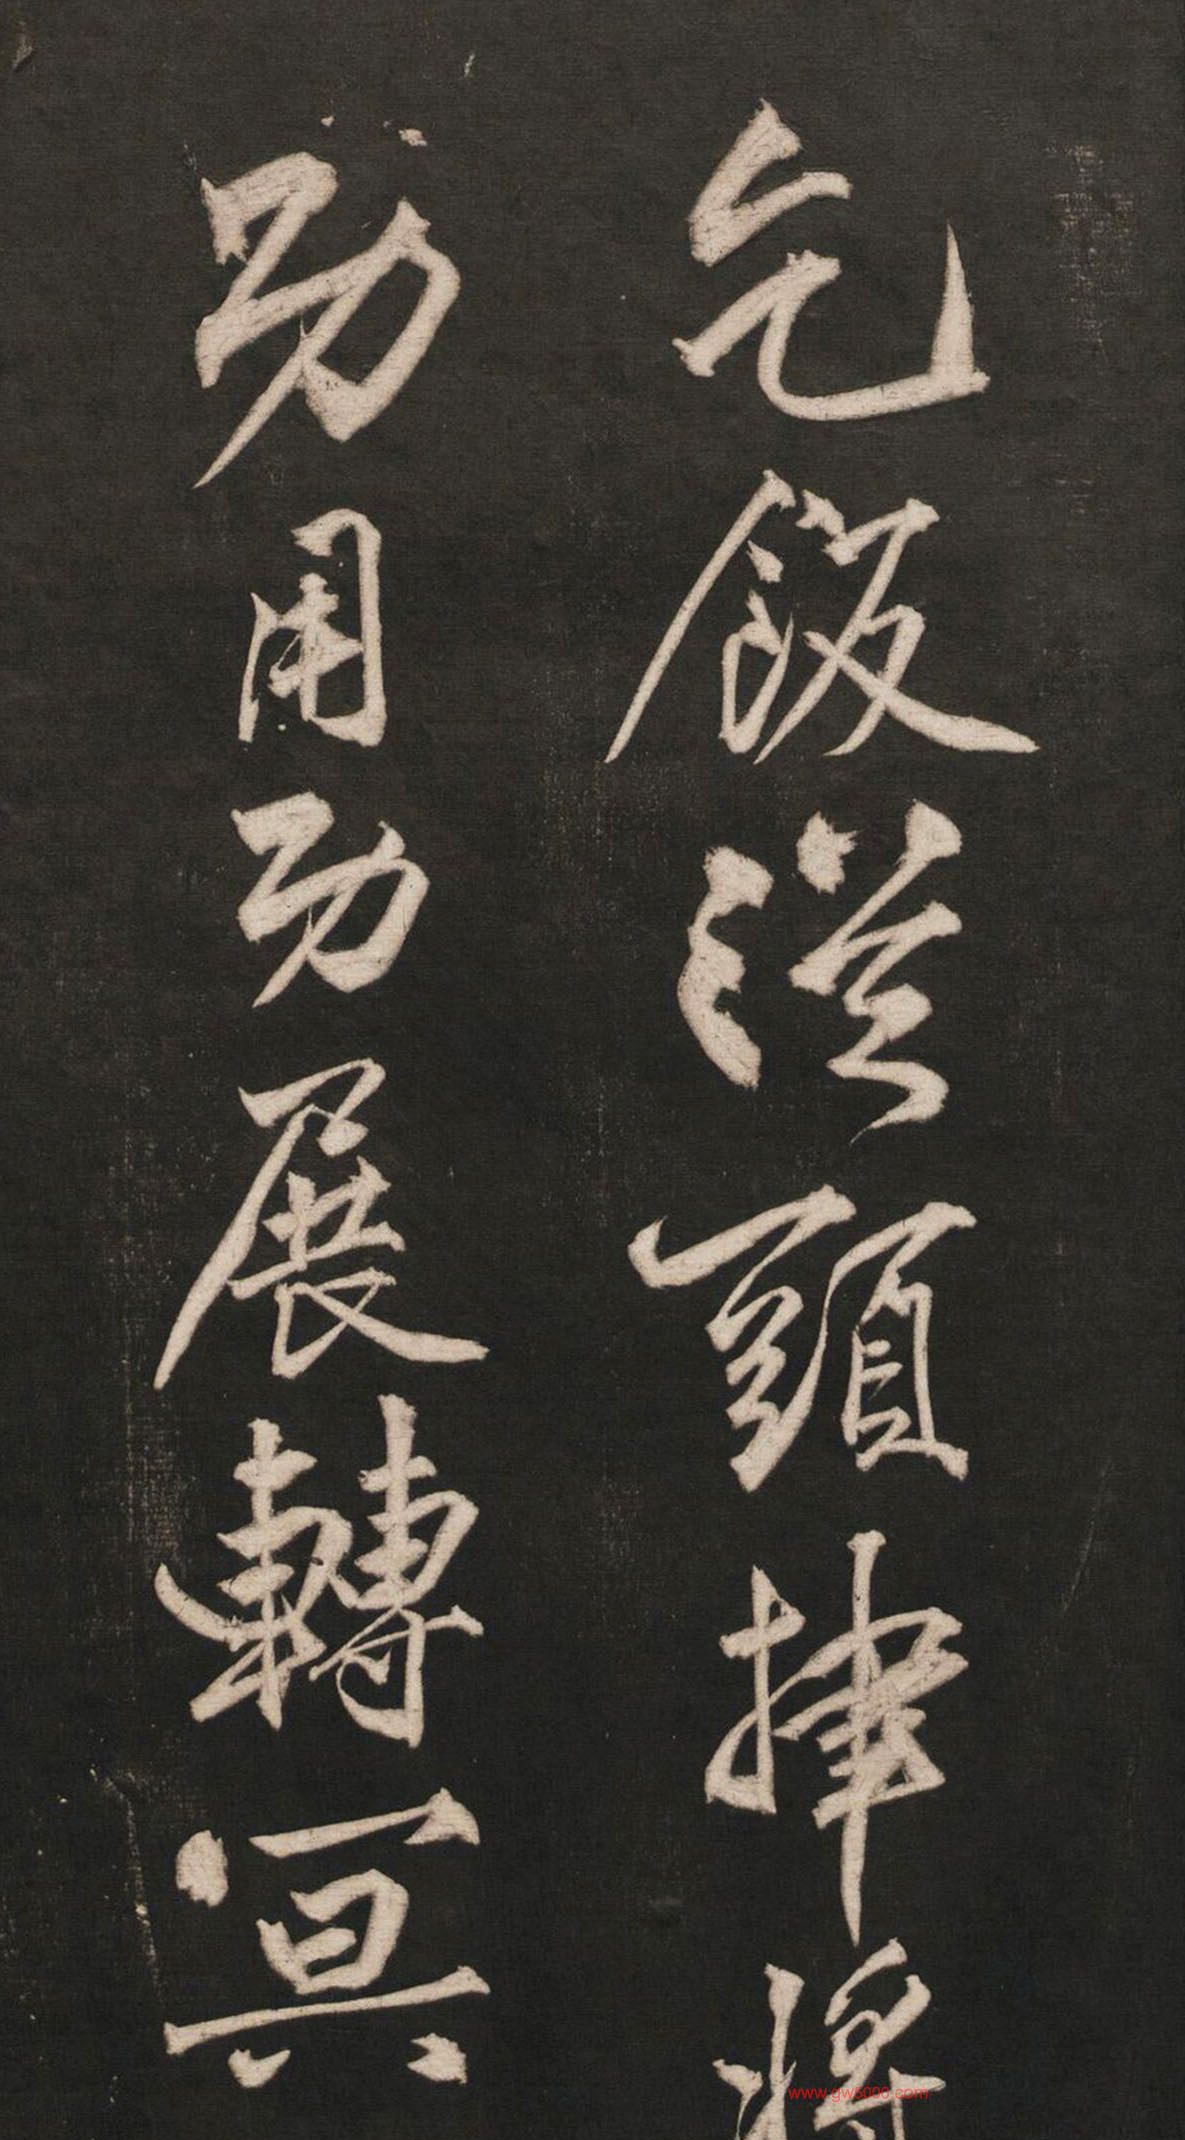 乞飯從頭將
功用功展轉冥
www.gw5000.com